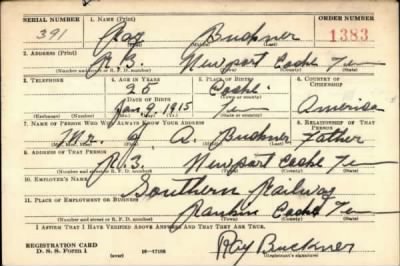 SERIAL NUMBER 1. NAME (Print) ORDER NUMBER
391 Ray Buckner 1383
(First) (Middle) (Last)
2. ADDRESS (Print)
R 3. Newport Cocke Ten
(Number and street or R. F. D. number) (Town) (County) (State)
3. TELEPHONE 4. AGE IN YEARS 5. PLACE OF BIRTH 6. COUNTRY OF CITIZENSHIP
25 Cocke
DATE OF BIRTH (Town or county)
Jan 9, 1915 Ten America
(Exchange) (Number) (Mo.) (Day) (Yr.) (State or country)
7. NAME OF PERSON WHO WILL ALWAYS KNOW YOUR ADDRESS 8. RELATIONSHIP OF THAT PERSON
Mr. J A. Buckner Father
(Mr., Mrs., Miss) (First) (Middle) (Last)
9. ADDRESS OF THAT PERSON
R 3. Newport Cocke Ten
(Number and street or R. F. D. number) (Town) (County) (State)
10. EMPLOYER'S NAME
Southern Railway
11. PLACE OF EMPLOYMENT OR BUSINESS
Rankin Cocke Ten
(Number and street or R. F. D. number) (Town) (County) (State)
I AFFIRM THAT I HAVE VERIFIED ABOVE ANSWERS AND THAT THEY ARE TRUE.
REGISTRATION CARD
D. S. S. Form 1 (over) 16—17105 Ray Buckner
(Registrant's signature)